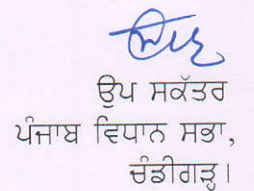 ਉਪ ਸਕੱਤਰ
ਪੰਜਾਬ ਵਿਧਾਨ ਸਭਾ,
ਚੰਡੀਗੜ੍ਹ।